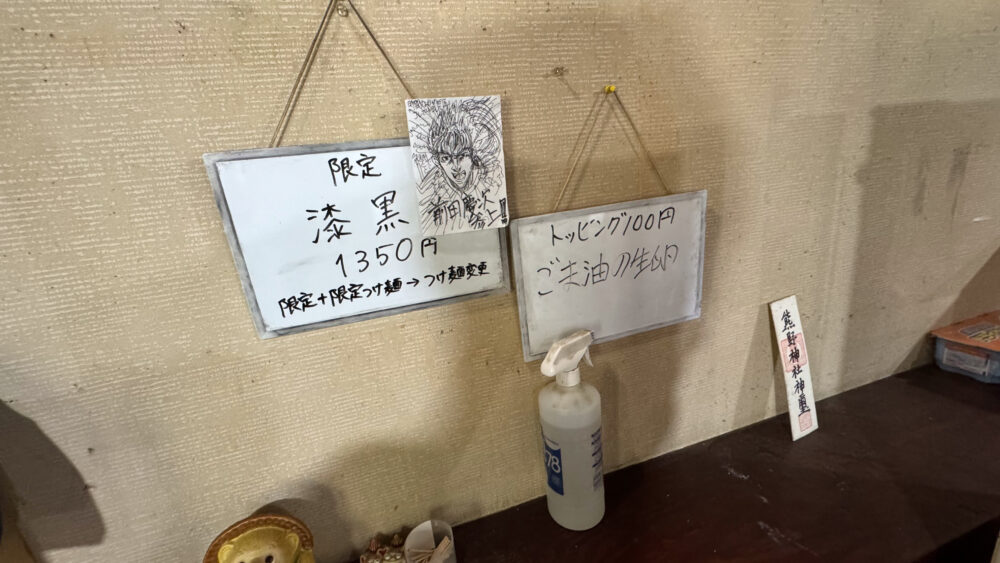 限定
漆黒
1350円
限定+限定つけ麺→つけ麺変更
前田慶次
参上
トッピング100円
ごま油の生卵
78
熊野神社神璽